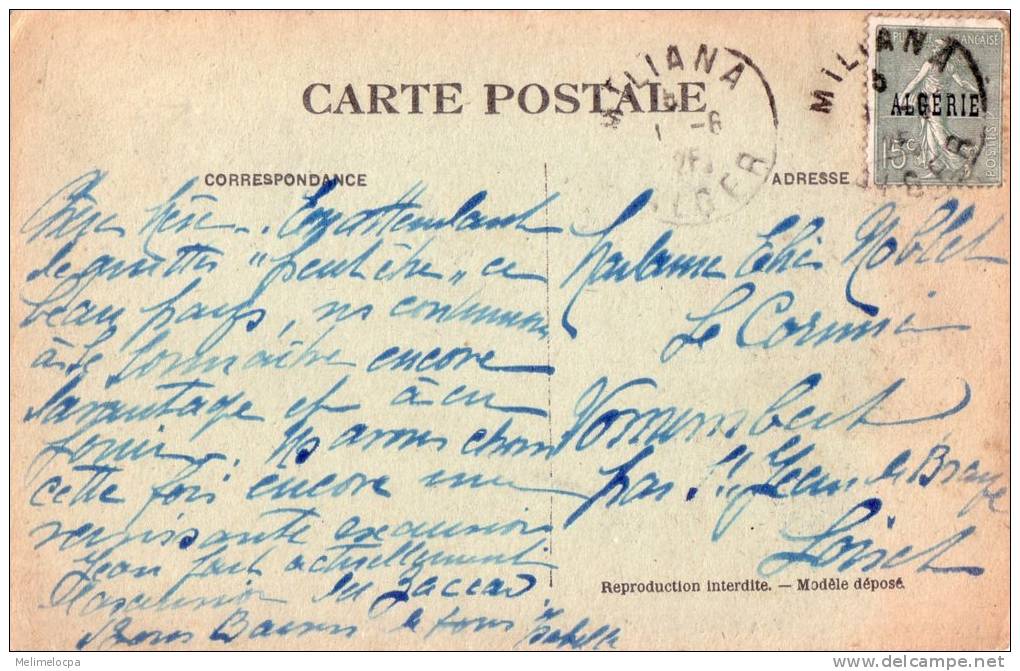 CARTE POSTALE
MILIANA
1 -6
ALGER
MILIANA
RÉPUBLIQUE FRANÇAISE
ALGÉRIE
15c
POSTES
CORRESPONDANCE
ADRESSE
Chère Mère.. En attendant
de quitter "peut être" ce
beau pays, ns continuons
à le connaître encore
davantage et à en
jouir. Ns avons choisi
cette fois encore une
ravissante excursion
Jean fait actuellement
l'ascension du Zaccar
Bons Baisers à tous
Isabelle
Madame Elie Noblet
Le Cormier
par St Jean de Braye
Loiret
Reproduction interdite. — Modèle déposé.
Melimelocpa
www.delcampe.net